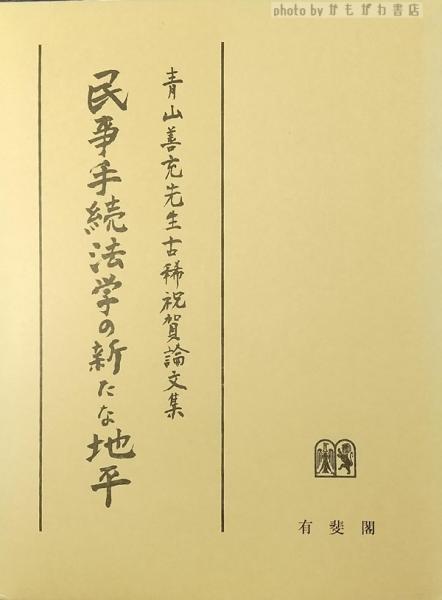 photo by かもがわ書店
青山善充先生古稀祝賀論文集
民事手続法学の新たな地平
有斐閣